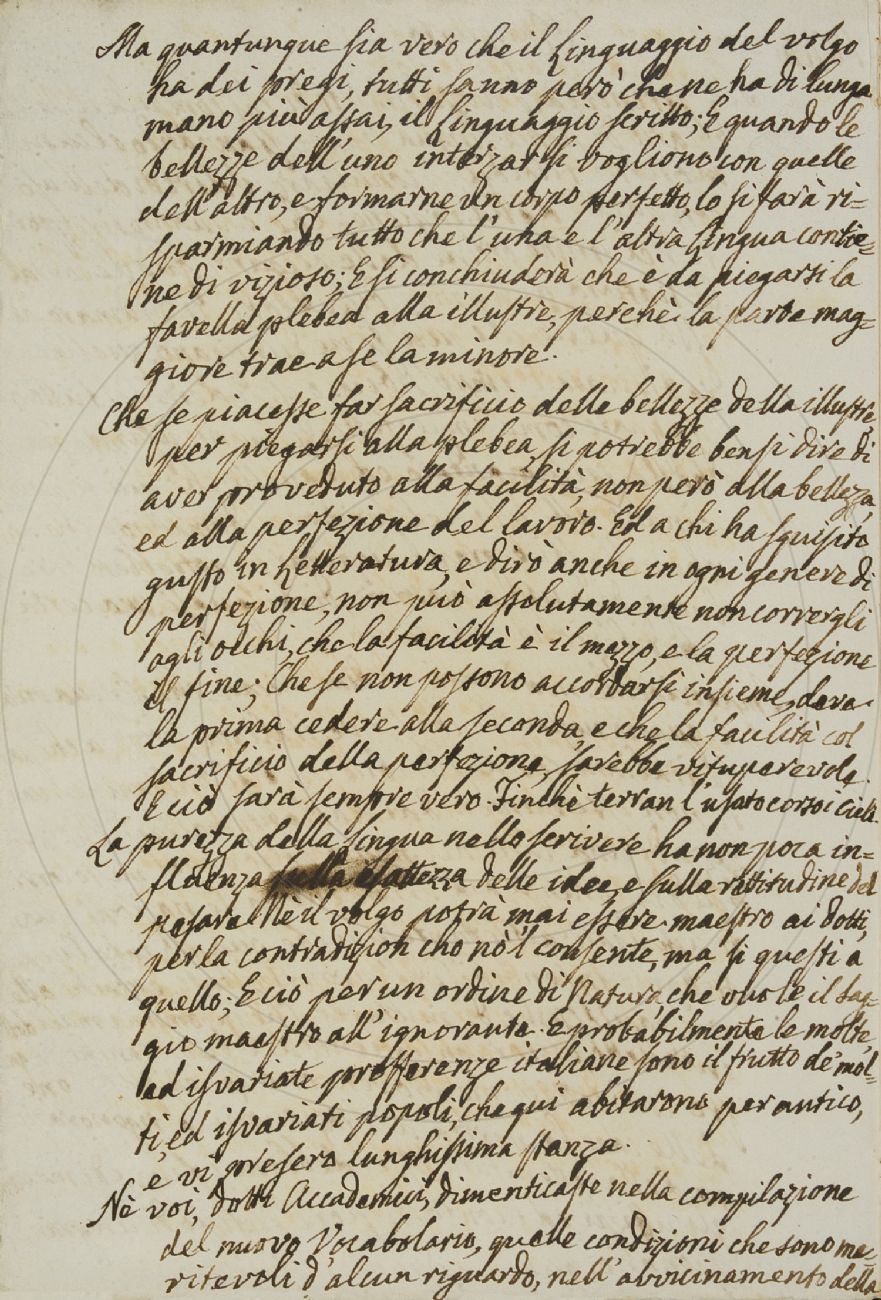 Ma quantunque sia vero che il Linguaggio del volgo
ha dei pregi, tutti sanno però che ne ha di lunga
mano più assai, il Linguaggio scritto; E quando le
bellezze dell'uno interzar si vogliono con quelle
dell'altro, e formarne un corpo perfetto, lo si farà ri=
sparmiando tutto che l'una e l'altra Lingua contie=
ne di vizioso; E si conchiuderà che è da piegarsi la
favella plebea alla illustre, perchè la parte mag=
giore trae a se la minore.
Che se piacesse far sacrificio delle bellezze della illustre,
per piegarsi alla plebea, si potrebbe bensi dire di
aver proveduto alla facilità, non però alla bellezza,
ed alla perfezione del lavoro. Ed a chi ha squisito
gusto in Letteratura, e dirò anche in ogni genere di
perfezione, non può assolutamente non corrergli
agli occhi, che la facilità è il mezzo, e la perfezione
il fine; Che se non possono accordarsi insieme, deve
la prima cedere alla seconda, e che la facilità col
sacrificio della perfezione, sarebbe vituperevole.
E ciò sarà sempre vero. Finchè terran l'usato corso i Cieli.
La purezza della Lingua nello scrivere ha non poca in=
fluenza sulla esattezza delle idee, e sulla rettitudine del
pesare. Nè il volgo potrà mai essere maestro ai dotti,
per la contradizion che nò'l consente, ma si questi a
quello; E ciò per un ordine di Natura, che vuole il sag=
gio maestro all'ignorante. E probabilmente le molte,
ed isvariate profferenze italiane sono il frutto de' mol=
ti, ed isvariati popoli, che qui abitarono per antico,
e vi presero lunghissima stanza.
Nè voi, dotti Accademici, dimenticaste nella compilazione
del nuovo Vocabolario, quelle condizioni che sono me=
ritevoli d'alcun riguardo, nell'avvicinamento della